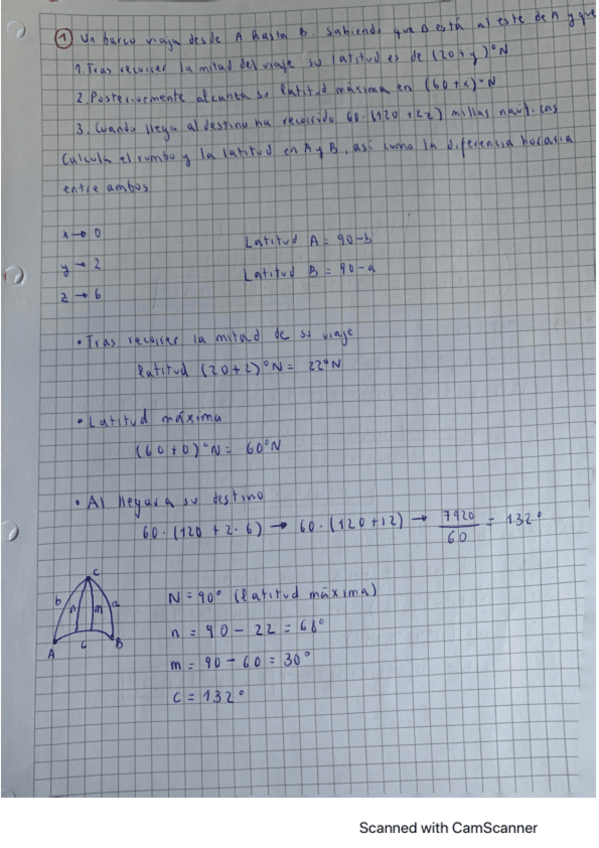 ① Un barco viaja desde A hasta B. Sabiendo que B está al este de A y que
1. Tras recorrer la mitad del viaje su latitud es de (20+y)°N
2. Posteriormente alcanza su latitud máxima en (60+x)°N
3. Cuando llega al destino ha recorrido 60·(120+2z) millas nauticas
Calcula el rumbo y la latitud en A y B, así como la diferencia horaria
entre ambos
x → 0
y → 2
z → 6
Latitud A = 90-b
Latitud B = 90-a
• Tras recorrer la mitad de su viaje
latitud (20+2)°N = 22°N
• Latitud máxima
(60+0)°N = 60°N
• Al llegar a su destino
60·(120+2·6) → 60·(120+12) → 7920/60 = 132°
C
b n m a
A c B
N = 90° (latitud máxima)
n = 90 - 22 = 68°
m = 90 - 60 = 30°
C = 132°
Scanned with CamScanner